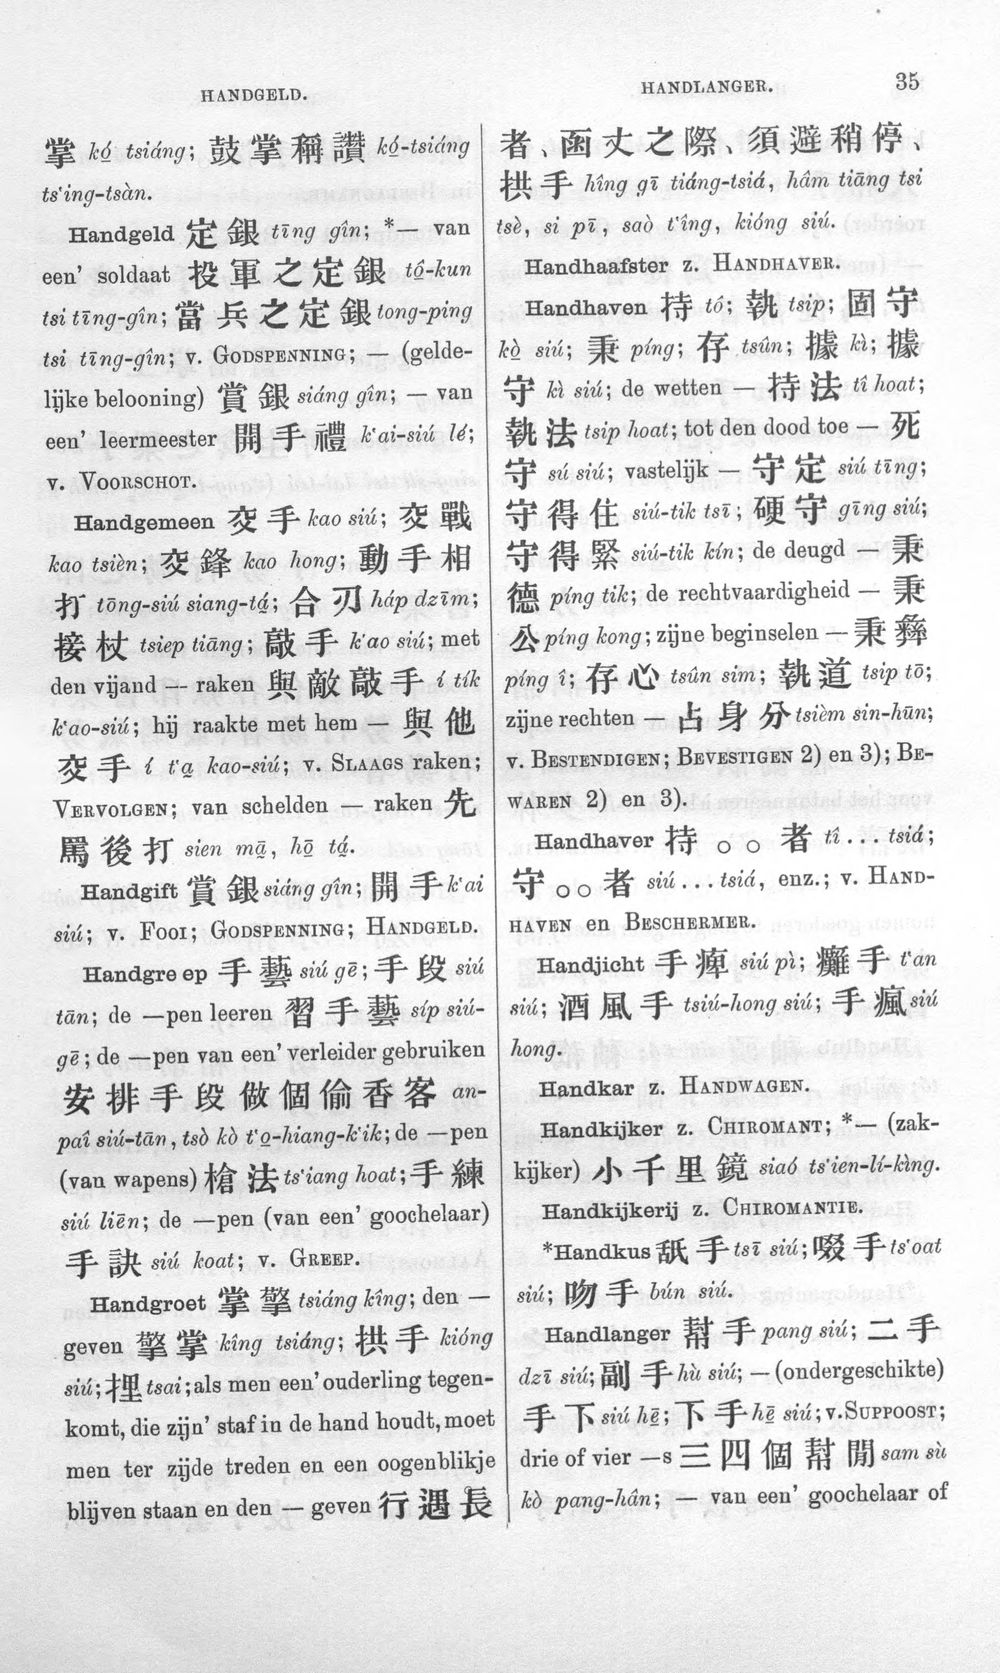 HANDGELD.
掌 kó̤ tsiáng; 鼓掌稱讚 kó̤-tsiáng
ts‘ing-tsàn.
Handgeld 定銀 tīng gîn; *— van
een’ soldaat 投軍之定銀 tô̤-kun
tsi tīng-gîn; 當兵之定銀 tong-ping
tsi tīng-gîn; v. GODSPENNING; — (gelde-
lijke belooning) 賞銀 siáng gîn; — van
een’ leermeester 開手禮 k‘ai-siú lé;
v. VOORSCHOT.
Handgemeen 交手 kao siú; 交戰
kao tsièn; 交鋒 kao hong; 動手相
打 tōng-siú siang-tá̤; 合刃 háp dzīm;
接杖 tsiep tiāng; 敲手 k‘ao siú; met
den vijand — raken 與敵敲手 í tík
k‘ao-siú; hij raakte met hem — 與他
交手 í t‘a̤ kao-siú; v. SLAAGS raken;
VERVOLGEN; van schelden — raken 先
罵後打 sien mā̤, hō̤ tá̤.
Handgift 賞銀 siáng gîn; 開手 k‘ai
siú; v. FOOI; GODSPENNING; HANDGELD.
Handgreep 手藝 siú gē; 手段 siú
tān; de —pen leeren 習手藝 síp siú-
gē; de —pen van een’ verleider gebruiken
安排手段做個偷香客 an-
paî siú-tān, tsò kò t‘o̤-hiang-k‘ik; de —pen
(van wapens) 槍法 ts‘iang hoat; 手練
siú liēn; de —pen (van een’ goochelaar)
手訣 siú koat; v. GREEP.
Handgroet 掌擎 tsiáng kîng; den —
geven 擎掌 kîng tsiáng; 拱手 kióng
siú; 捚 tsai; als men een’ ouderling tegen-
komt, die zijn’ staf in de hand houdt, moet
men ter zijde treden en een oogenblikje
blijven staan en den — geven 行遇長
HANDLANGER. 35
者、函丈之際、須避稍停、
拱手 hîng gī tiáng-tsiá, hâm tiāng tsi
tsè, si pī, saò t‘îng, kióng siú.
Handhaafster z. HANDHAVER.
Handhaven 持 tó; 執 tsip; 固守
kò̤ siú; 秉 píng; 存 tsûn; 據 kì; 據
守 kì siú; de wetten — 持法 tî hoat;
執法 tsip hoat; tot den dood toe — 死
守 sú siú; vastelijk — 守定 siú tīng;
守得住 siú-tik tsī; 硬守 gīng siú;
守得緊 siú-tik kín; de deugd — 秉
德 píng tik; de rechtvaardigheid — 秉
公 píng kong; zijne beginselen — 秉彝
píng î; 存心 tsûn sim; 執道 tsip tō;
zijne rechten — 占身分 tsièm sin-hūn;
v. BESTENDIGEN; BEVESTIGEN 2) en 3); BE-
WAREN 2) en 3).
Handhaver 持○○者 tî . . . tsiá;
守○○者 siú . . . tsiá, enz.; v. HAND-
HAVEN en BESCHERMER.
Handjicht 手痺 siú pì; 癱手 t‘an
siú; 酒風手 tsiú-hong siú; 手瘋 siú
hong.
Handkar z. HANDWAGEN.
Handkijker z. CHIROMANT; *— (zak-
kijker) 小千里鏡 siaó ts‘ien-lí-kìng.
Handkijkerij z. CHIROMANTIE.
*Handkus 舐手 tsī siú; 啜手 ts‘oat
siú; 吻手 bún siú.
Handlanger 幇手 pang siú; 二手
dzī siú; 副手 hù siú; — (ondergeschikte)
手下 siú hē̤; 下手 hē̤ siú; v. SUPPOOST;
drie of vier —s 三四個幇閒 sam sù
kò pang-hân; — van een’ goochelaar of